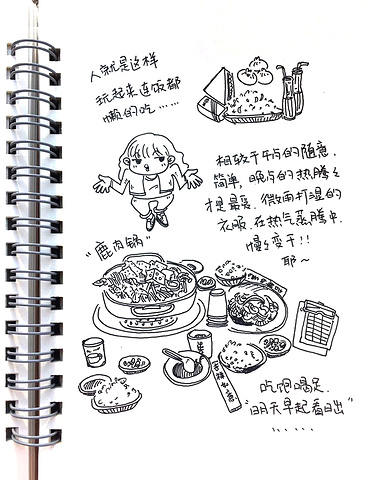 人就是这样
玩起来连饭都
懒的吃……
相较于午的随意.
简单, 晚点的热腾々
才是最爱. 微雨打湿的
衣服. 在热气蒸腾中.
慢々变干!!
耶~
"鹿肉锅"
吃饱喝足.
"明天早起看日出"
......